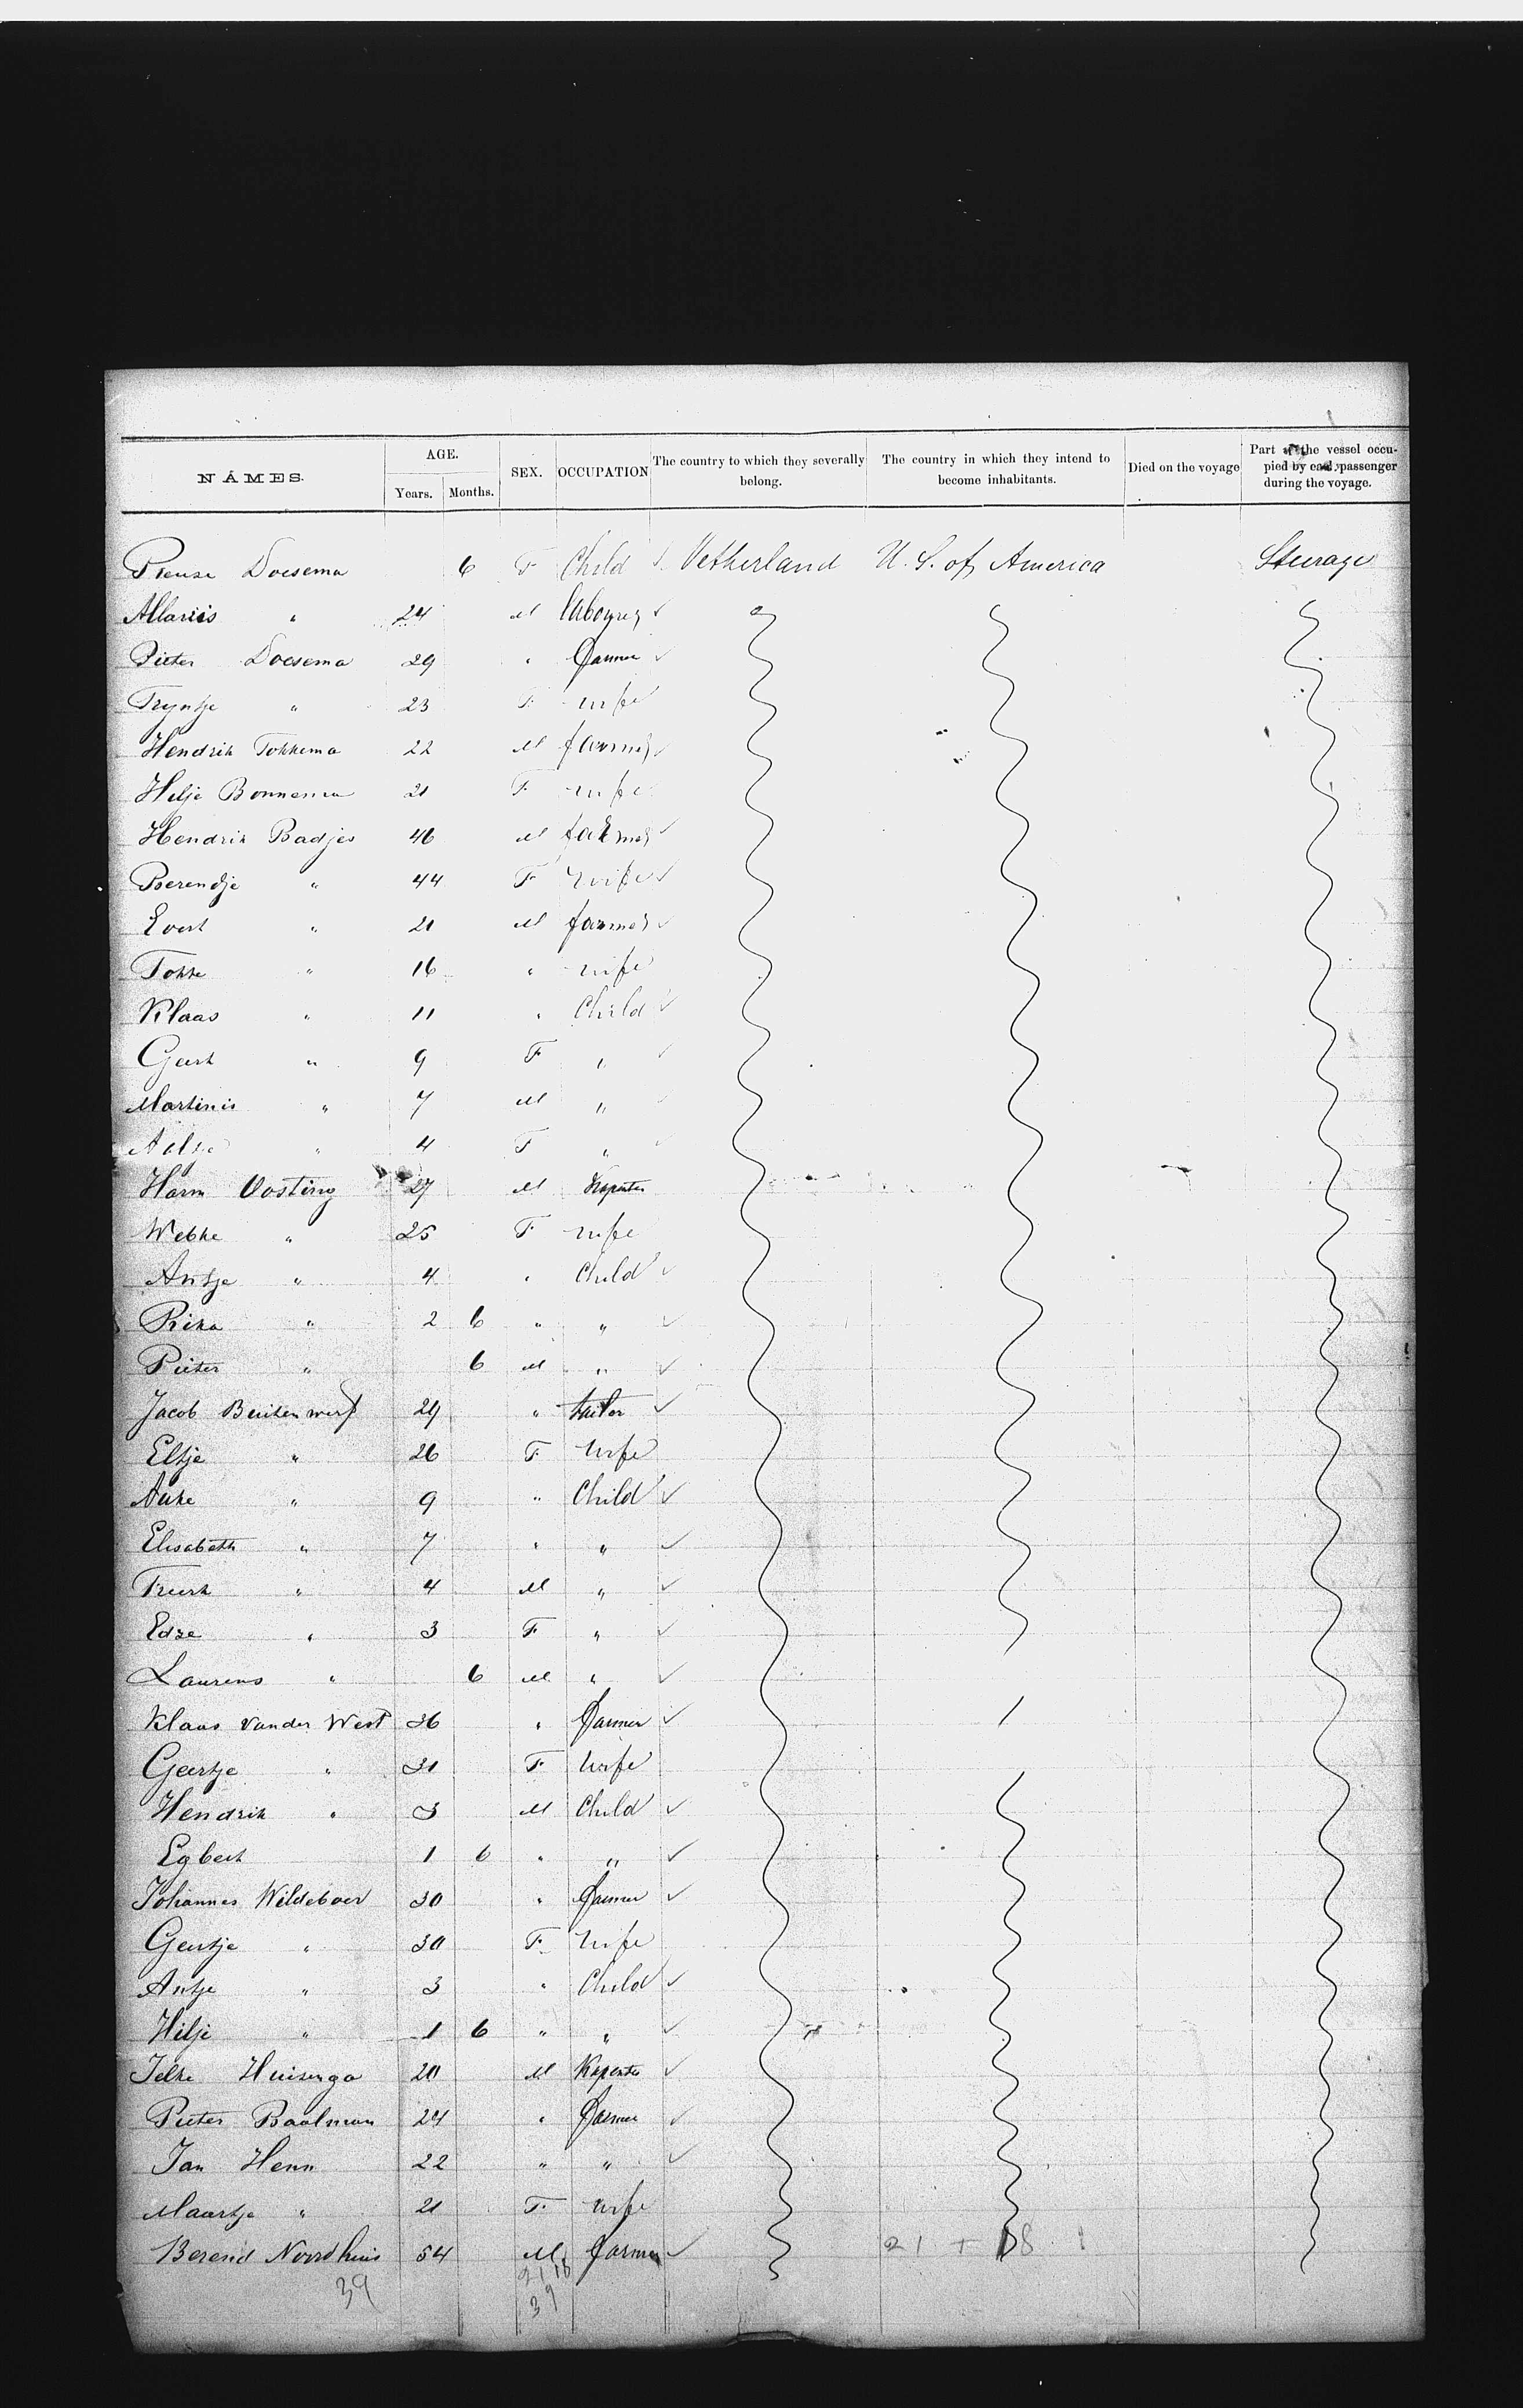 NAMES. AGE. SEX. OCCUPATION The country to which they severally belong. The country in which they intend to become inhabitants. Died on the voyage Part of the vessel occupied by each passenger during the voyage.
Years. Months.
Doesema 6 F Child Netherland U. S. of America Steerage
" 24 M
Pieter Doesema 29 " Farmer
Tryntje " 23 F wife
Hendrik Tokkema 22 M farmer
Hilje Bonnema 21 F wife
Hendrik Badjes 46 M farmer
Berendje " 44 F wife
Evert " 21 M farmer
Tokke " 16 " wife
Klaas " 11 " Child
Geert " 9 F "
Martinis " 7 M "
" 4 F "
Harm Oosting 27 M
Webke " 25 F wife
Antje " 4 " Child
Rika " 2 6 " "
Pieter " 6 M "
Jacob Buitenwerf 29 " tailor
Eltje " 26 F Wife
Auke " 9 " Child
Elisabeth " 7 " "
" 4 M "
Edze " 3 F "
Laurens " 6 M "
Klaas vander West 36 " Farmer
Geertje " 31 F Wife
Hendrik " 3 M Child
Egbert 1 6 " "
Johannes Wildeboer 30 " Farmer
Geertje " 30 F Wife
Antje " 3 " Child
Hilje " 1 6 " "
Jelke Huisenga 20 M Kapenter
Pieter Baalman 24 " Farmer
Jan Henn 22 " "
Maartje " 21 F wife
Berend Noordhuis 54 M Farmer 21 + 18
39 21 18
39